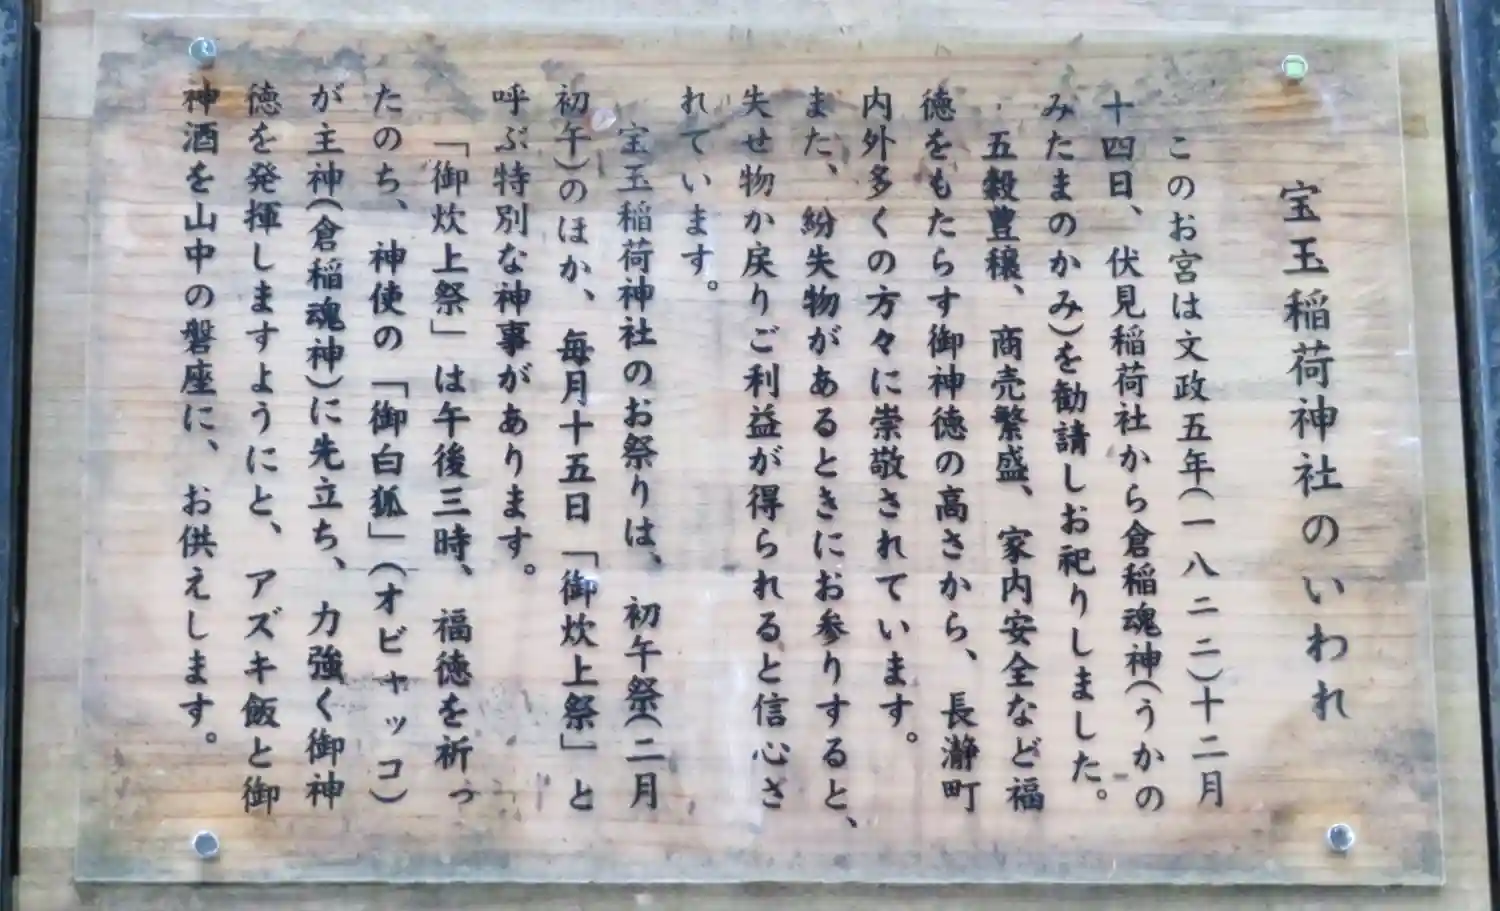 宝玉稲荷神社のいわれ
このお宮は文政五年(一八二二)十二月
十四日、伏見稲荷社から倉稲魂神(うかの
みたまのかみ)を勧請しお祀りしました。
五穀豊穣、商売繁盛、家内安全など福
徳をもたらす御神徳の高さから、長瀞町
内外多くの方々に崇敬されています。
また、紛失物があるときにお参りすると、
失せ物か戻りご利益が得られると信心さ
れています。
宝玉稲荷神社のお祭りは、初午祭(二月
初午)のほか、毎月十五日「御炊上祭」と
呼ぶ特別な神事があります。
「御炊上祭」は午後三時、福徳を祈っ
たのち、神使の「御白狐」(オビャッコ)
が主神(倉稲魂神)に先立ち、力強く御神
徳を発揮しますようにと、アズキ飯と御
神酒を山中の磐座に、お供えします。